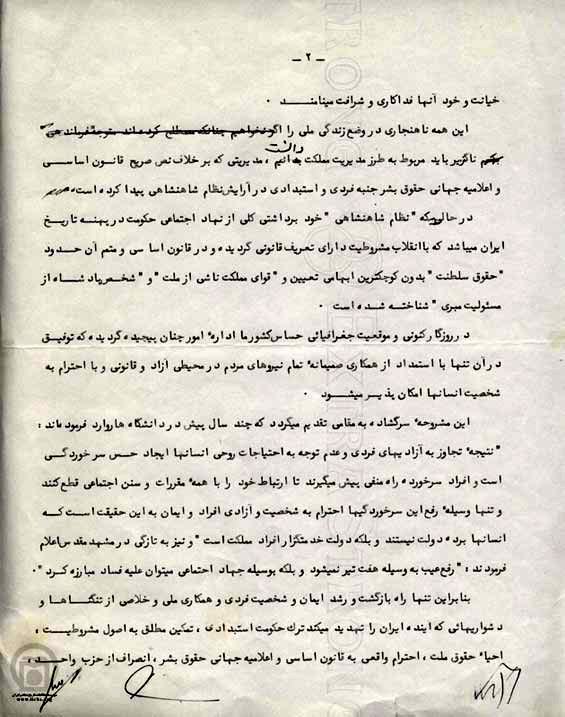 - ۲ -
خیانت و خود آنها فداکاری و شرافت مینامند .
این همه ناهنجاری در وضع زندگی ملی را
داشت
ناگزیر باید مربوط به طرز مدیریت مملکت ، مدیریتی که برخلاف نص صریح قانون اساسی
و اعلامیه جهانی حقوق بشر جنبه فردی و استبدادی در آرایش نظام شاهنشاهی پیدا کرده است .
در حالیکه "نظام شاهنشاهی" خود برداشتی کلی از نهاد اجتماعی حکومت در پهنه تاریخ
ایران میباشد که با انقلاب مشروطیت دارای تعریف قانونی گردیده و در قانون اساسی و متمم آن حدود
"حقوق سلطنت" بدون کوچکترین ابهامی تعیین و "قوای مملکت ناشی از ملت" و "شخص پادشاه از
مسئولیت مبری" شناخته شده است .
در روزگار کنونی و موقعیت جغرافیائی حساس کشور ما اداره امور چنان پیچیده گردیده که توفیق
در آن تنها با استمداد از همکاری صمیمانه تمام نیروهای مردم در محیطی آزاد و قانونی و با احترام به
شخصیت انسانها امکان پذیر میشود .
این مشروحه سرگشاده به مقامی تقدیم میگردد که چند سال پیش در دانشگاه هاروارد فرموده‌اند :
"نتیجه تجاوز به آزادیهای فردی و عدم توجه به احتیاجات روحی انسانها ایجاد حس سرخوردگی
است و افراد سرخورده راه منفی پیش میگیرند تا ارتباط خود را با همه مقررات و سنن اجتماعی قطع کنند
و تنها وسیله رفع این سرخوردگیها احترام به شخصیت و آزادی افراد و ایمان به این حقیقت است که
انسانها برده دولت نیستند و بلکه دولت خدمتگزار افراد مملکت است" و نیز به تازگی در مشهد مقدس اعلام
فرمودند : "رفع عیب به وسیله هفت تیر نمیشود و بلکه بوسیله جهاد اجتماعی میتوان علیه فساد مبارزه کرد" .
بنابراین تنها راه بازگشت و رشد ایمان و شخصیت فردی و همکاری ملی و خلاصی از تنگناها و
دشواریهائی که آینده ایران را تهدید میکند ترک حکومت استبدادی ، تمکین مطلق به اصول مشروطیت ،
احیاء حقوق ملت ، احترام واقعی به قانون اساسی و اعلامیه جهانی حقوق بشر ، انصراف از حزب واحد ،